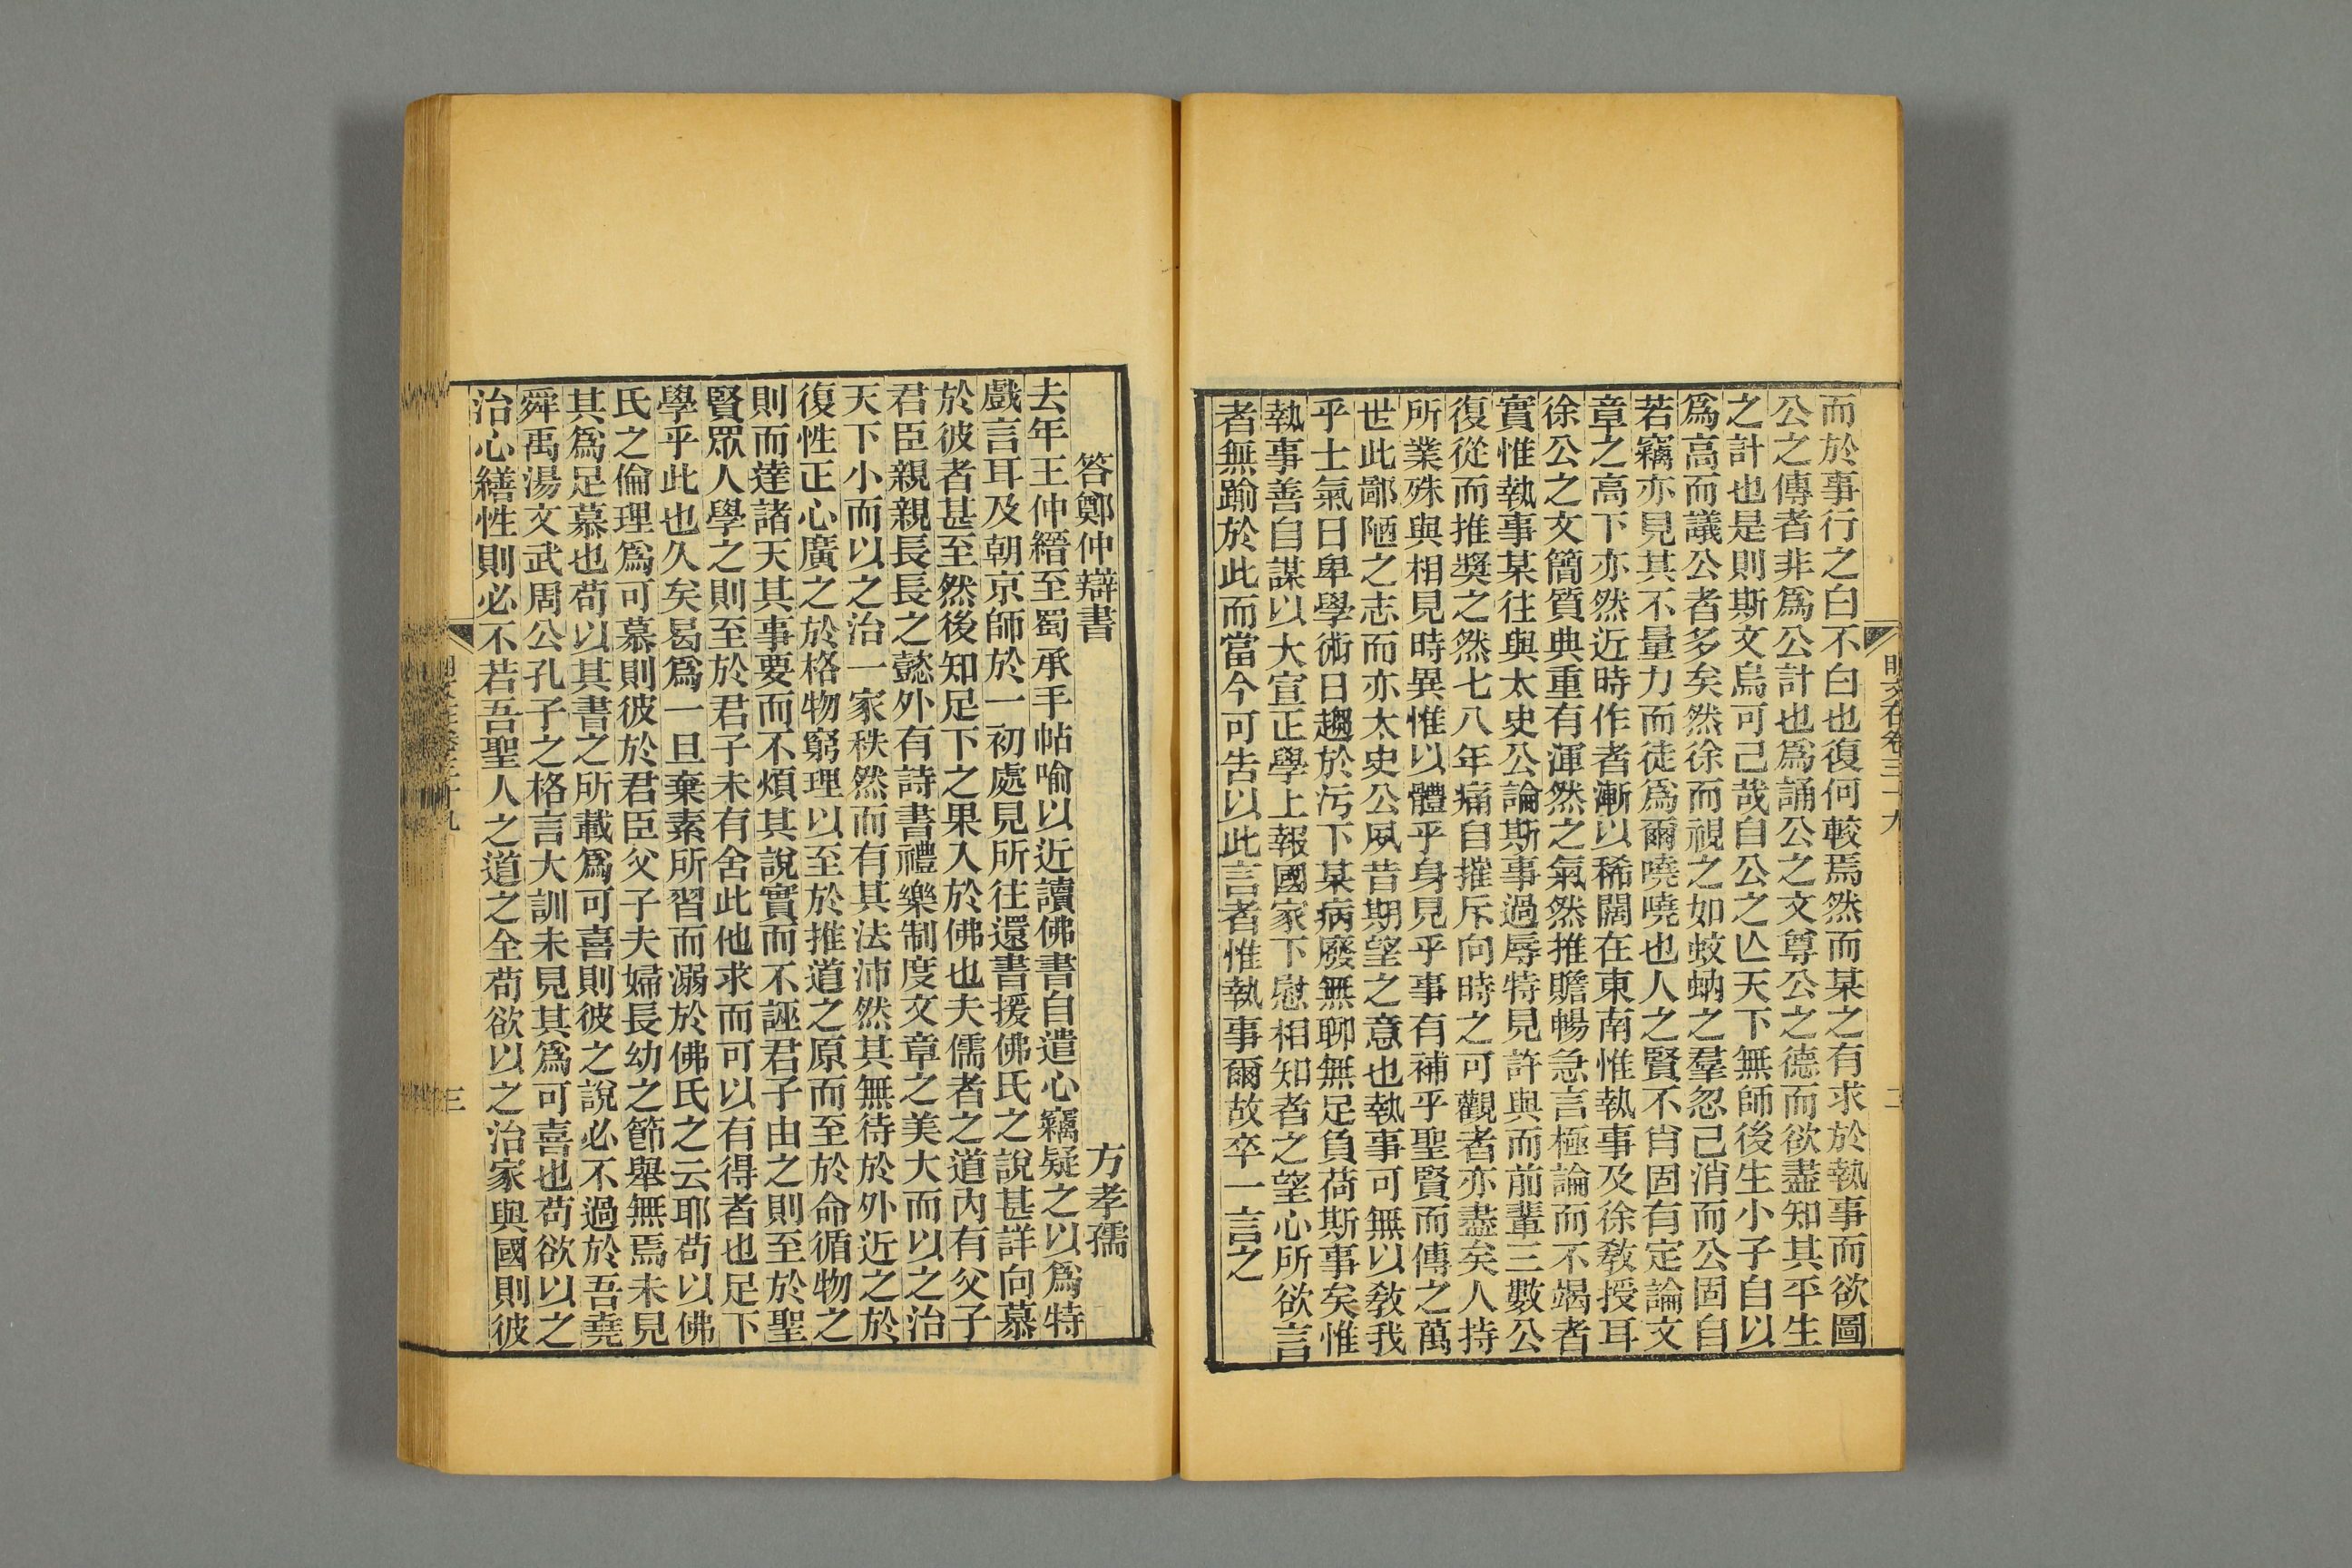 而於事行之白不白也復何較焉然而某之有求於執事而欲圖
公之傳者非爲公計也爲誦公之文尊公之德而欲盡知其平生
之計也是則斯文烏可已哉自公之亾天下無師後生小子自以
爲高而議公者多矣然徐而視之如蚊蚋之羣忽已消而公固自
若竊亦見其不量力而徒爲爾嘵嘵也人之賢不肖固有定論文
章之高下亦然近時作者漸以稀闊在東南惟執事及徐教授耳
徐公之文簡質典重有渾然之氣然推贍暢急言極論而不竭者
實惟執事某往與太史公論斯事過辱特見許與而前輩三數公
復從而推獎之然七八年痛自摧斥向時之可觀者亦盡矣人持
所業殊與相見時異惟以體乎身見乎事有補乎聖賢而傳之萬
世此鄙陋之志而亦太史公夙昔期望之意也執事可無以教我
乎士氣日卑學術日趨於污下某病廢無聊無足負荷斯事矣惟
執事善自謀以大宣正學上報國家下慰相知者之望心所欲言
者無踰於此而當今可告以此言者惟執事爾故卒一言之
明文在卷三十九
二
答鄭仲辯書
方孝孺
去年王仲縉至蜀承手帖喻以近讀佛書自遣心竊疑之以爲特
戲言耳及朝京師於一初處見所往還書援佛氏之說甚詳向慕
於彼者甚至然後知足下之果入於佛也夫儒者之道內有父子
君臣親親長長之懿外有詩書禮樂制度文章之美大而以之治
天下小而以之治一家秩然而有其法沛然其無待於外近之於
復性正心廣之於格物窮理以至於推道之原而至於命循物之
則而達諸天其事要而不煩其說實而不誣君子由之則至於聖
賢眾人學之則至於君子未有舍此他求而可以有得者也足下
學乎此也久矣曷爲一旦棄素所習而溺於佛氏之云耶苟以佛
氏之倫理爲可慕則彼於君臣父子夫婦長幼之節舉無焉未見
其爲足慕也苟以其書之所載爲可喜則彼之說必不過於吾堯
舜禹湯文武周公孔子之格言大訓未見其爲可喜也苟欲以之
治心繕性則必不若吾聖人之道之全苟欲以之治家與國則彼
三